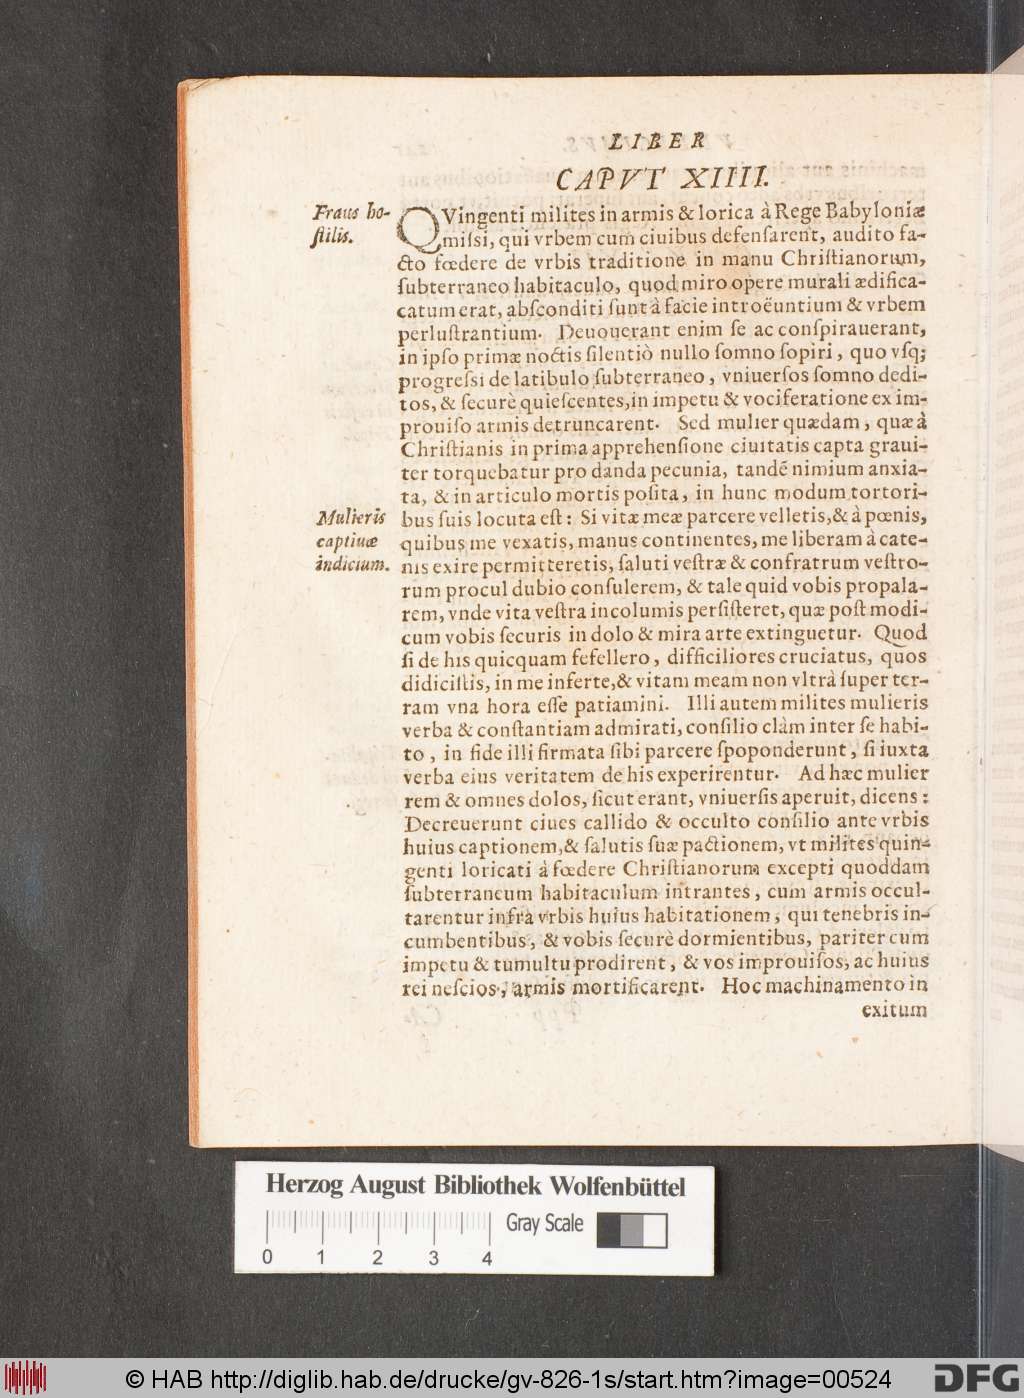 LIBER
CAPVT XIIII.
Fraus ho-
ſtilis.
QVingenti milites in armis & lorica à Rege Babyloniæ
miſsi, qui vrbem cum ciuibus defenſarent, audito fa-
cto fœdere de vrbis traditione in manu Chriſtianorum,
ſubterraneo habitaculo, quod miro opere murali ædifica-
catum erat, abſconditi ſunt à facie introëuntium & vrbem
perluſtrantium. Deuouerant enim ſe ac conſpirauerant,
in ipſo primæ noctis ſilentiò nullo ſomno ſopiri, quo vſq;
progreſsi de latibulo ſubterraneo, vniuerſos ſomno dedi-
tos, & ſecurè quieſcentes, in impetu & vociferatione ex im-
prouiſo armis detruncarent. Sed mulier quædam, quæ à
Chriſtianis in prima apprehenſione ciuitatis capta graui-
ter torquebatur pro danda pecunia, tandẽ nimium anxia-
ta, & in articulo mortis poſita, in hunc modum tortori-
Mulieris
captiuæ
indicium.
bus ſuis locuta eſt: Si vitæ meæ parcere velletis, & à pœnis,
quibus me vexatis, manus continentes, me liberam à cate-
nis exire permitteretis, ſaluti veſtræ & confratrum veſtro-
rum procul dubio conſulerem, & tale quid vobis propala-
rem, vnde vita veſtra incolumis perſiſteret, quæ poſt modi-
cum vobis ſecuris in dolo & mira arte extinguetur. Quod
ſi de his quicquam fefellero, difficiliores cruciatus, quos
didiciſtis, in me inferte, & vitam meam non vltrà ſuper ter-
ram vna hora eſſe patiamini. Illi autem milites mulieris
verba & conſtantiam admirati, conſilio clàm inter ſe habi-
to, in fide illi firmata ſibi parcere ſpoponderunt, ſi iuxta
verba eius veritatem de his experirentur. Ad hæc mulier
rem & omnes dolos, ſicut erant, vniuerſis aperuit, dicens:
Decreuerunt ciues callido & occulto conſilio ante vrbis
huius captionem, & ſalutis ſuæ pactionem, vt milites quin-
genti loricati à fœdere Chriſtianorum excepti quoddam
ſubterraneum habitaculum intrantes, cum armis occul-
tarentur infrà vrbis huius habitationem, qui tenebris in-
cumbentibus, & vobis ſecurè dormientibus, pariter cum
impetu & tumultu prodirent, & vos improuiſos, ac huius
rei neſcios, armis mortificarent. Hoc machinamento in
exitum
Herzog August Bibliothek Wolfenbüttel
Gray Scale
0 1 2 3 4
© HAB http://diglib.hab.de/drucke/gv-826-1s/start.htm?image=00524
DFG